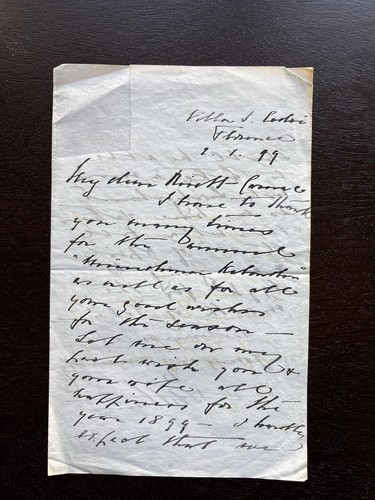 Villa S.
Florence
2. 1. 99
My dear Rivett-Carnac
I have to thank
you many times
for the annual
"Münchener Kalender"
as well as for all
your good wishes
for the season —
Let me on my
part wish you &
your wife all
happiness for the
year 1899 — I hardly
expect that we